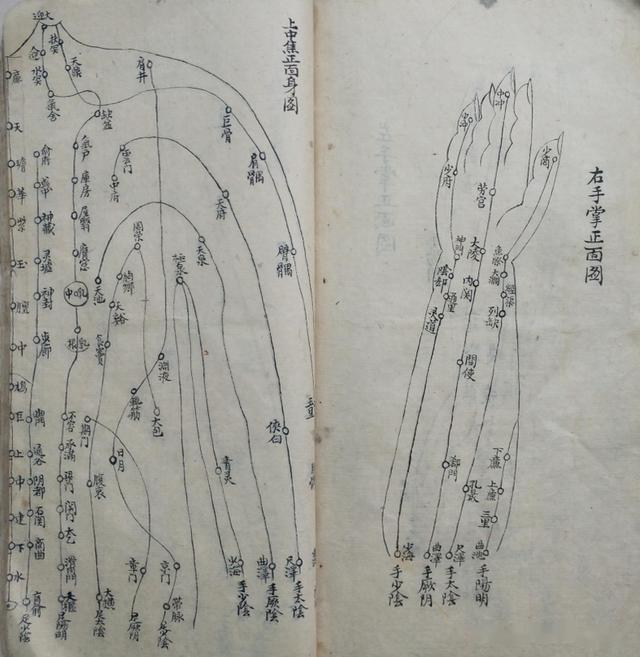 上中焦正面身图
肩井
天鼎
扶突
大迎
水突
氣舍
缺盆
巨骨
肩髃
臂臑
雲門
中府
天府
俠白
尺澤
手太陰
天泉
曲澤
手厥陰
極泉
青灵
少海
手少陰
淵液
輒筋
日月
京門
帶脉
大包
周荣
胸鄉
天谿
食竇
腹哀
大横
足太陰
天池
期門
章門
足厥阴
氣户
庫房
屋翳
膺窓
乳中
乳根
不容
承滿
梁門
関門
太乙
滑肉
天樞
足陽明
俞府
神藏
灵墟
神封
步廊
幽門
通谷
阴都
石関
商曲
肓俞
足少陰
廉
天
璇
華
紫
玉
膻
中
鳩
巨
上
中
建
下
水
右手掌正面图
少商
魚際
太淵
經渠
列缺
孔最
尺澤
手太陰
中冲
劳宫
大陵
内関
間使
郄門
曲澤
手厥阴
少冲
少府
神門
陰郄
通里
灵道
少海
手少陰
下廉
上廉
三里
曲池
手陽明